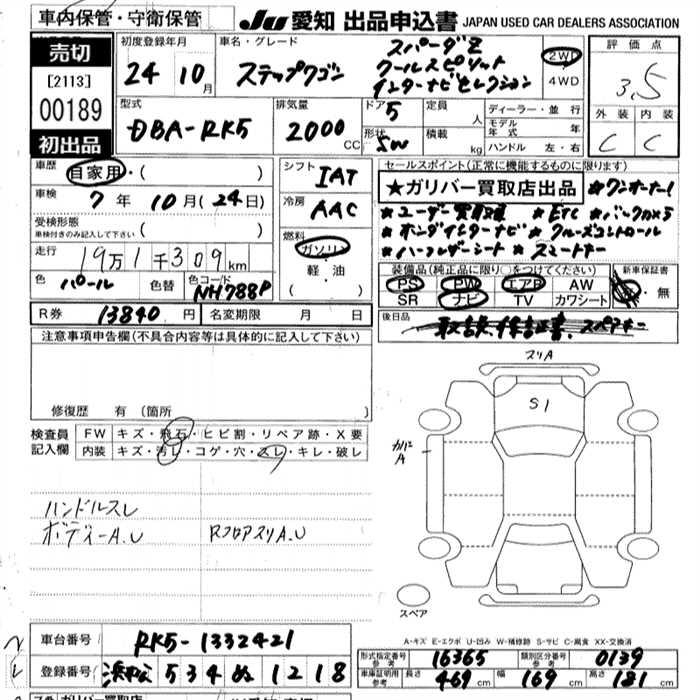 車内保管・守衛保管
JU 愛知 出品申込書 JAPAN USED CAR DEALERS ASSOCIATION
売切
[2113]
00189
初出品
初度登録年月
24 10月
車名・グレード
ステップワゴン
スパーダZ
クールスピリット
インターナビセレクション
2WD
4WD
評価点
3.5
外装 内装
C C
型式
DBA-RK5
排気量
2000 CC
ドア
5
形状
SW
定員 人
積載 kg
ディーラー・並行
モデル年式 年
ハンドル 左・右
車歴 自家用・( )
車検 7年 10月(24日)
受検形態
車検付きのみ記入して下さい ( )
走行 19万1千309km
色 パール 色替 色コード NH788P
シフト IAT
冷房 AAC
燃料
ガソリン
軽・油
( ・ )
セールスポイント(正常に機能するものに限ります)
★ガリバー買取店出品 ★ワンオーナー!
★ユーザー買取車 ★ETC ★バックカメラ
★ホンダインターナビ ★クルーズコントロール
★ハーフレザーシート ★スマートキー
装備品(純正品に限り○をつけてください)
PS PW エアB AW
SR ナビ TV カワシート
新車保証書
有・無
R券 13840円 名変期限 月 日
後日品 取説 保証書 スペアキー
注意事項申告欄(不具合内容等は具体的に記入して下さい)
修復歴 有(箇所 )
検査員記入欄
FW キズ・飛石・ヒビ割・リペア跡・X要
内装 キズ・汚レ・コゲ・穴・スレ・キレ・破レ
ハンドルスレ
ボディーA.U RフロアスリA.U
スリA
S1
カバA
スペア
A-キズ E-エクボ U-凹み W-補修跡 S-サビ C-腐食 XX-交換済
車台番号 RK5-1332421
登録番号 浜松 534 ぬ 1218
形式指定番号 参考 16365 類別区分番号 参考 0139
車庫証明用 参考 長さ 469cm 幅 169cm 高さ 181cm
ガリバー買取店